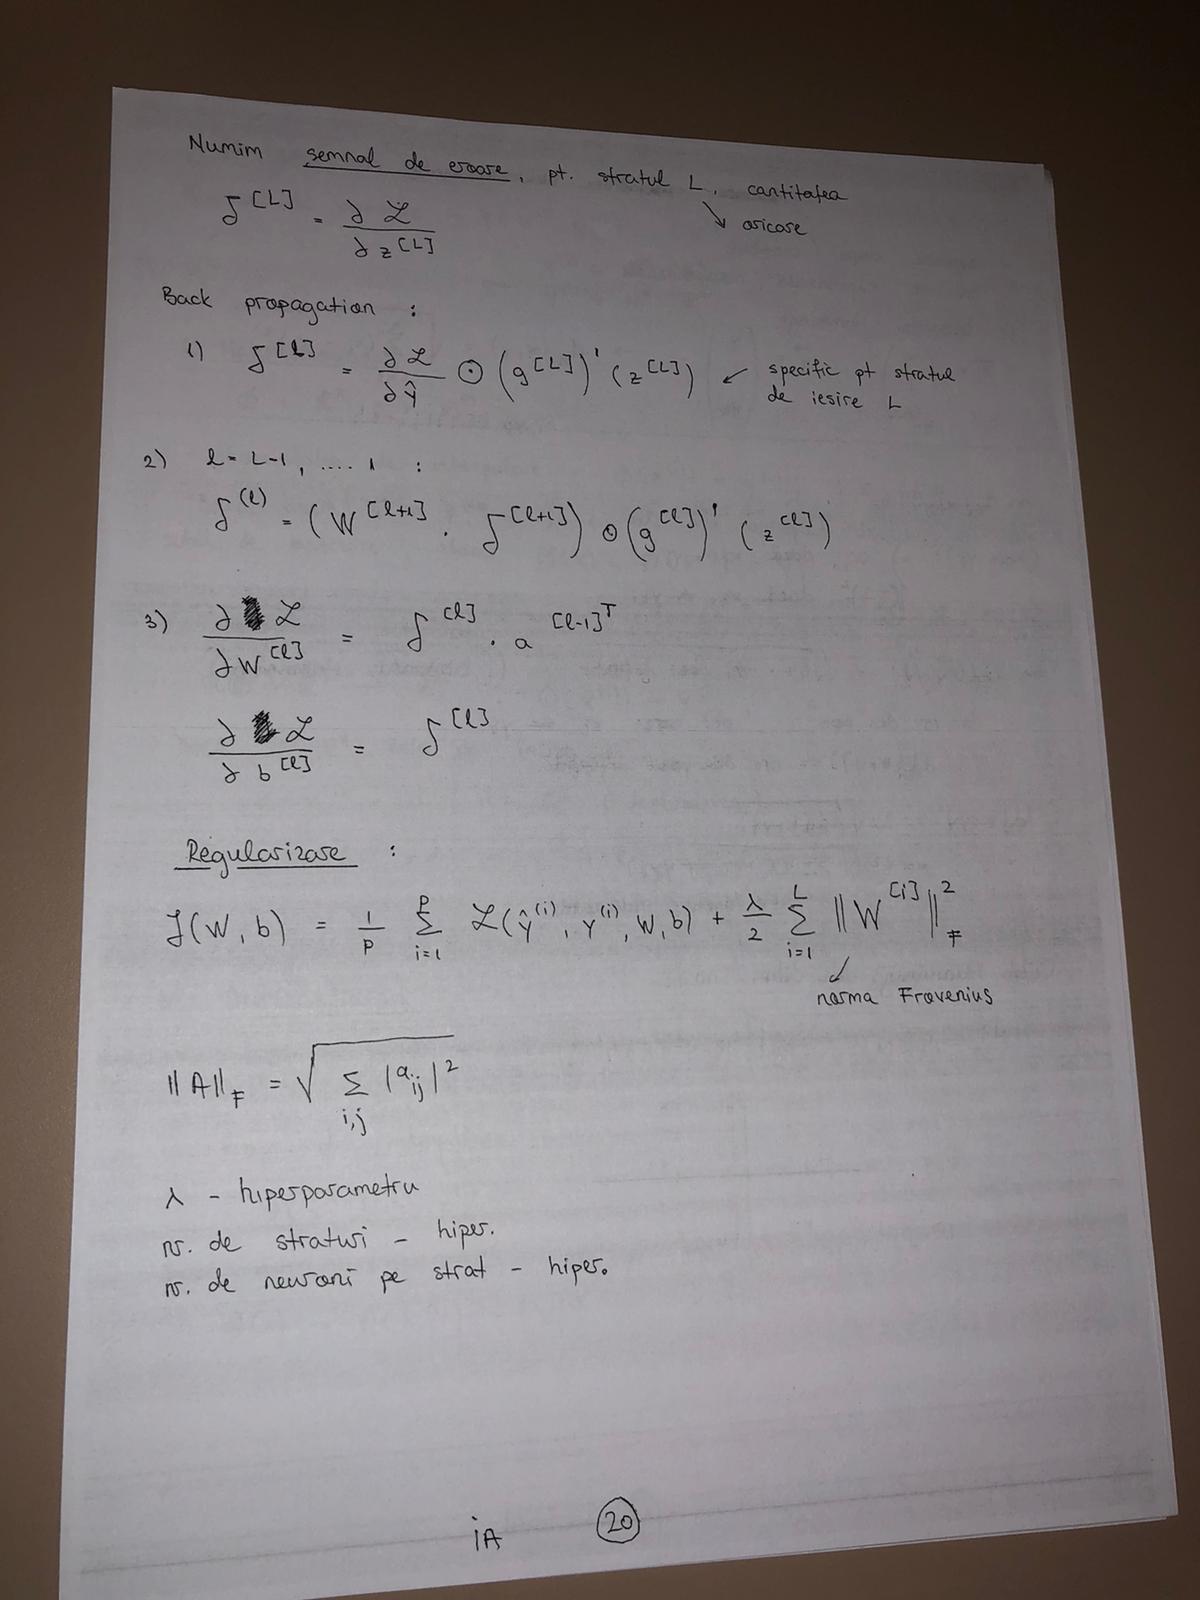 Numim semnal de eroare, pt. stratul L, cantitatea
↘ oricare
δ^[L] = ∂ℒ / ∂z^[L]
Back propagation :
1) δ^[L] = ∂ℒ / ∂ŷ ⊙ (g^[L])' (z^[L]) ↙ specific pt stratul
de iesire L
2) l = L-1, .... 1 :
δ^(l) = (W^[l+1] · δ^[l+1]) ⊙ (g^[l])' (z^[l])
3) ∂ℒ / ∂W^[l] = δ^[l] · a^[l-1]^T
∂ℒ / ∂b^[l] = δ^[l]
Regularizare :
J(W, b) = 1/p Σ_{i=1}^{p} ℒ(ŷ^(i), y^(i), W, b) + λ/2 Σ_{i=1}^{L} ||W^[i]||²_F
↙ norma Frovenius
||A||_F = √ Σ_{i,j} |a_ij|²
λ - hiperparametru
nr. de straturi - hiper.
nr. de neuroni pe strat - hiper.
iA 20